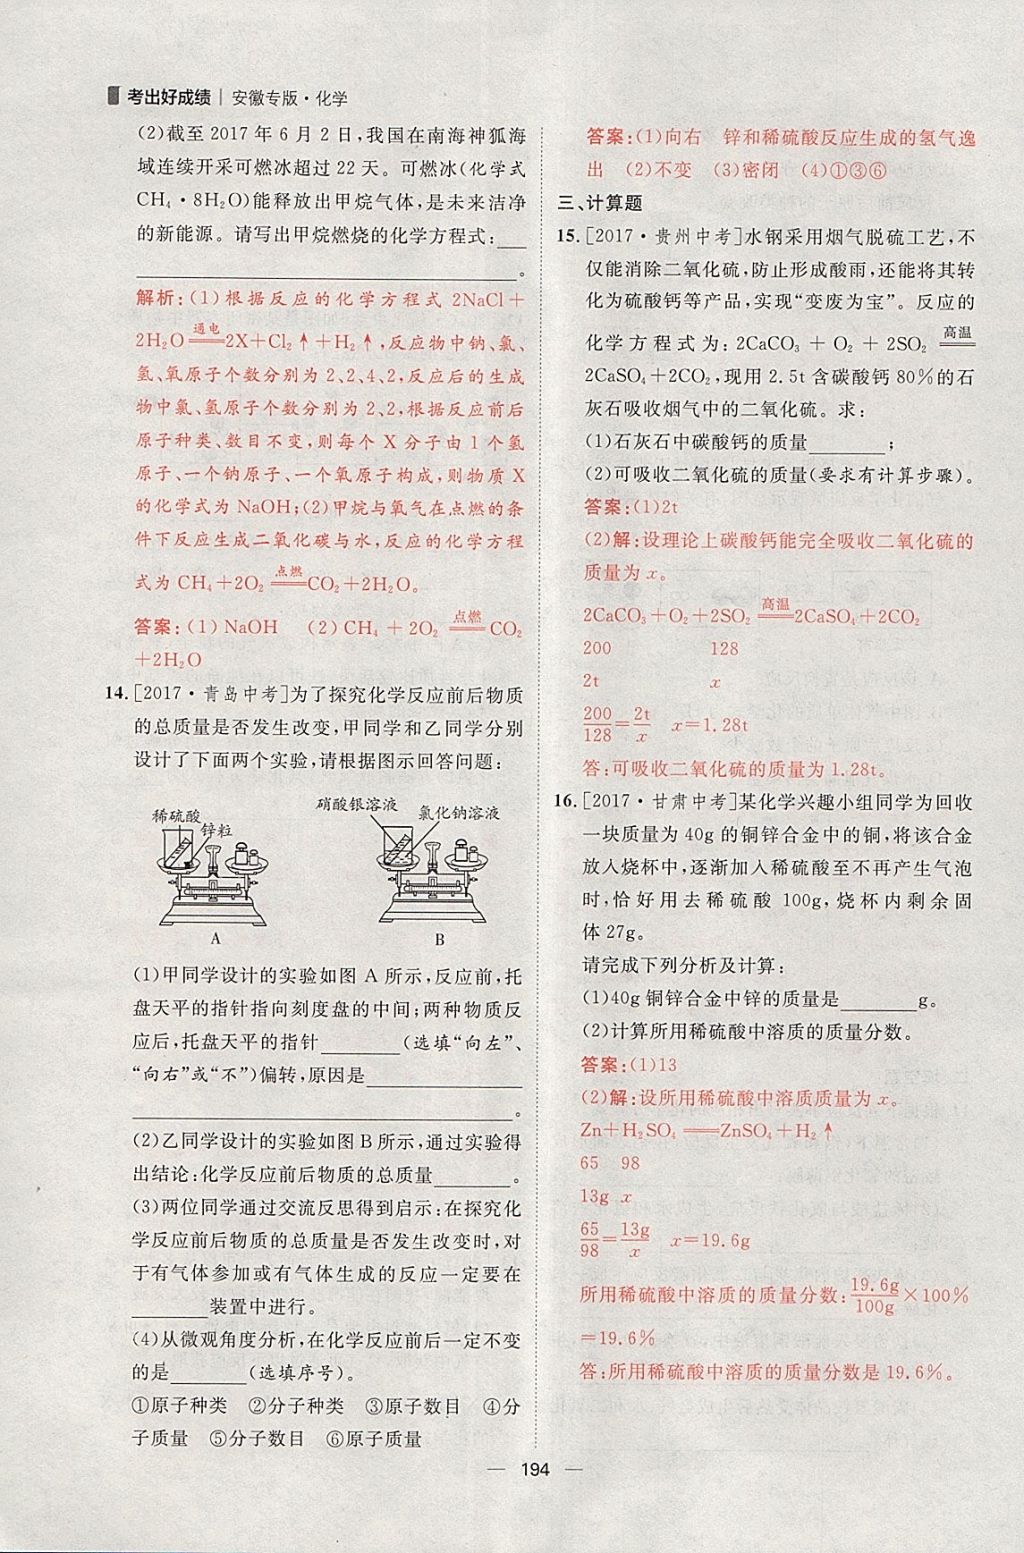 考出好成绩 | 安徽专版·化学
(2)截至 2017 年 6 月 2 日,我国在南海神狐海
域连续开采可燃冰超过 22 天。可燃冰(化学式
CH₄·8H₂O)能释放出甲烷气体,是未来洁净
的新能源。请写出甲烷燃烧的化学方程式:___
______________________________。
解析:(1)根据反应的化学方程式 2NaCl+
2H₂O 通电══ 2X+Cl₂↑+H₂↑,反应物中钠、氯、
氢、氧原子个数分别为 2、2、4、2,反应后的生成
物中氯、氢原子个数分别为 2、2,根据反应前后
原子种类、数目不变,则每个 X 分子由 1 个氢
原子、一个钠原子、一个氧原子构成,则物质 X
的化学式为 NaOH;(2)甲烷与氧气在点燃的条
件下反应生成二氧化碳与水,反应的化学方程
式为 CH₄+2O₂ 点燃══ CO₂+2H₂O。
答案:(1)NaOH (2)CH₄+2O₂ 点燃══ CO₂
+2H₂O
14.[2017·青岛中考]为了探究化学反应前后物质
的总质量是否发生改变,甲同学和乙同学分别
设计了下面两个实验,请根据图示回答问题:
稀硫酸
锌粒
硝酸银溶液
氯化钠溶液
A
B
(1)甲同学设计的实验如图 A 所示,反应前,托
盘天平的指针指向刻度盘的中间;两种物质反
应后,托盘天平的指针________(选填“向左”、
“向右”或“不”)偏转,原因是______________
______________________________。
(2)乙同学设计的实验如图 B 所示,通过实验得
出结论:化学反应前后物质的总质量________。
(3)两位同学通过交流反思得到启示:在探究化
学反应前后物质的总质量是否发生改变时,对
于有气体参加或有气体生成的反应一定要在
________装置中进行。
(4)从微观角度分析,在化学反应前后一定不变
的是________(选填序号)。
①原子种类 ②分子种类 ③原子数目 ④分
子质量 ⑤分子数目 ⑥原子质量
答案:(1)向右 锌和稀硫酸反应生成的氢气逸
出 (2)不变 (3)密闭 (4)①③⑥
三、计算题
15.[2017·贵州中考]水钢采用烟气脱硫工艺,不
仅能消除二氧化硫,防止形成酸雨,还能将其转
化为硫酸钙等产品,实现“变废为宝”。反应的
化学方程式为:2CaCO₃+O₂+2SO₂ 高温══
2CaSO₄+2CO₂,现用 2.5t 含碳酸钙 80%的石
灰石吸收烟气中的二氧化硫。求:
(1)石灰石中碳酸钙的质量________;
(2)可吸收二氧化硫的质量(要求有计算步骤)。
答案:(1)2t
(2)解:设理论上碳酸钙能完全吸收二氧化硫的
质量为 x。
2CaCO₃+O₂+2SO₂ 高温══ 2CaSO₄+2CO₂
200 128
2t x
200/128=2t/x x=1.28t
答:可吸收二氧化硫的质量为 1.28t。
16.[2017·甘肃中考]某化学兴趣小组同学为回收
一块质量为 40g 的铜锌合金中的铜,将该合金
放入烧杯中,逐渐加入稀硫酸至不再产生气泡
时,恰好用去稀硫酸 100g,烧杯内剩余固
体 27g。
请完成下列分析及计算:
(1)40g 铜锌合金中锌的质量是________g。
(2)计算所用稀硫酸中溶质的质量分数。
答案:(1)13
(2)解:设所用稀硫酸中溶质质量为 x。
Zn+H₂SO₄══ZnSO₄+H₂↑
65 98
13g x
65/98=13g/x x=19.6g
所用稀硫酸中溶质的质量分数:19.6g/100g×100%
=19.6%
答:所用稀硫酸中溶质的质量分数是 19.6%。
— 194 —